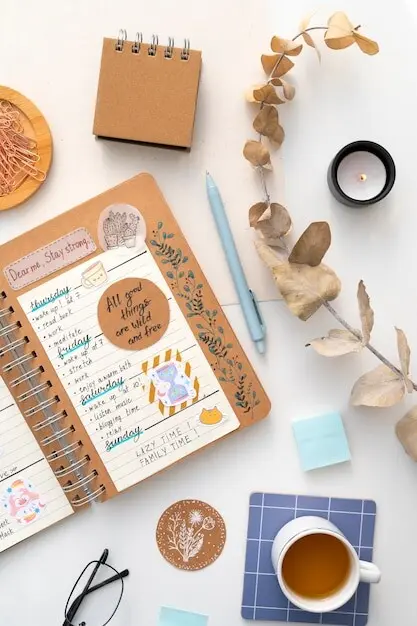 Dear me, Stay strong
thursday
• wake up!
• read
• work
• meditate
friday
• wake up
• stretch
• work
• enjoy a warm bath
Saturday
• wake up at 10
• listen music
• blogging time
• relax
Sunday
LAZY TIME!
FAMILY TIME!
All good
things
are wild
and free